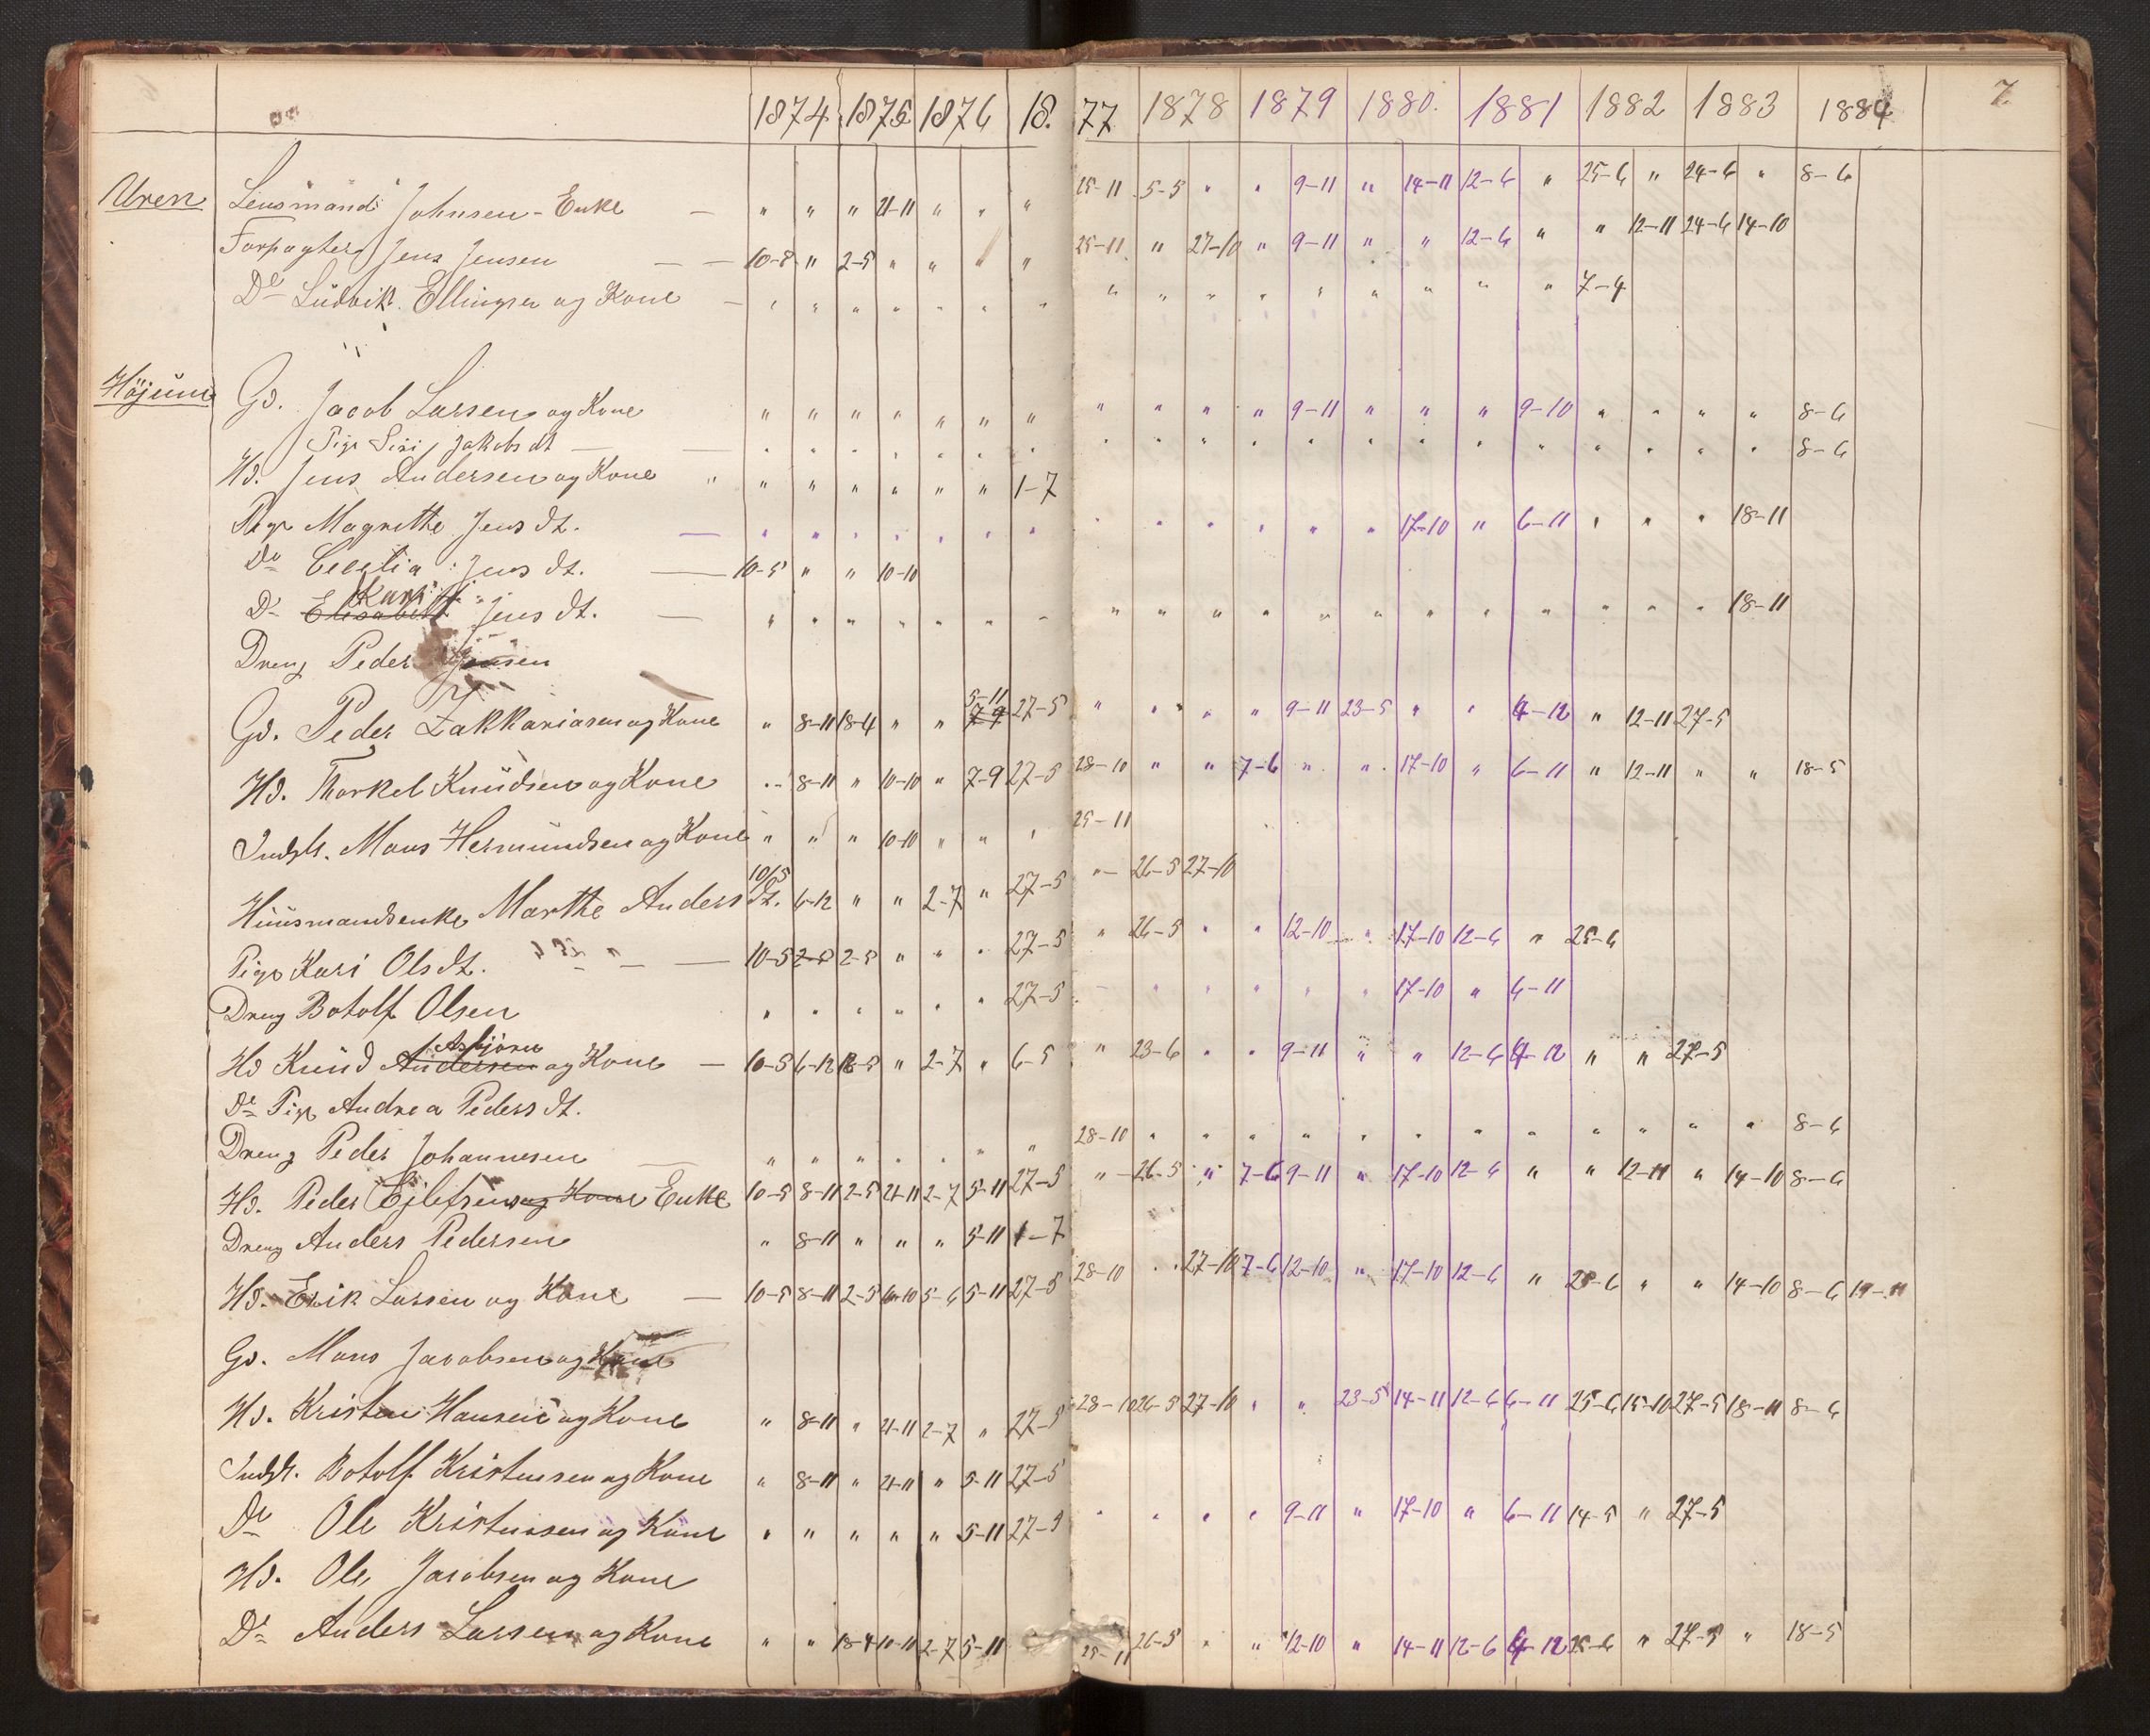 1874 1875 1876 18. 77 1878 1879 1880. 1881 1882 1883 1884 7
Uren Lensmand Johnsen-Enke — " " " 21-11 " " " 25-11 5-5 " " 9-11 " 14-11 12-6 " 25-6 " 24-6 " 8-6
Forpagter Jens Jensen — — 10-5 " 2-5 " " " " 25-11 " 27-10 " 9-11 " " 12-6 " " 12-11 24-6 14-10
Do Ludvik Ellingsen og Kone — " " " " " " " " " " " " " " " " 7-4
Höjum Gd. Jacob Larsen og Kone " " " " " " " " " " " 9-11 " " " 9-10 " " " " 8-6
Pige Siri Jakobsdt — — " " " " " " " " " " " " " " " " " " " " 8-6
Hd. Jens Andersen og Kone " " " " " " " 1-7
Pige Magrethe Jensdt. — " " " " " " " " " " " " " 17-10 " 6-11 " " " 18-11
Do Cecelia Jensdt. — 10-5 " " 10-10
Kari
Do Elisabeth Jensdt. — " " " " " " " " " " " " " " " " " " " 18-11
Dreng Peder Jensen
5-11
Gd. Peder Zakkariasen og Kone " 8-11 18-4 " " 7-9 27-5 " " " " 9-11 23-5 " " 4-12 " 12-11 27-5
Hd. Thorkel Knudsen og Kone " 8-11 " 10-10 " 7-9 27-5 28-10 " " 7-6 " " 17-10 " 6-11 " 12-11 " " 18-5
Indst. Mons Hermundsen og Kone " " " 10-10 " " " 25-11
10/5
Huusmandsenke Marthe Andersdt. 6-12 " " 2-7 " 27-5 " 26-5 27-10
Pige Kari Olsdt. — — 10-5 2-5 2-5 " " " 27-5 " 26-5 " " 12-10 " 17-10 12-6 " 25-6
Dreng Botolf Olsen " " " " " " 27-5 " " " " " " 17-10 " 6-11
Asbjörn
Hd Knud Andersen og Kone — 10-5 6-12 18-5 " 2-7 " 6-5 " 23-6 " " 9-11 " " 12-6 4-12 " " 27-5
Do Pige Andrea Pedersdt.
Dreng Peder Johannesen — " " " " " " " 28-10 " " " " " " " " " " " " 8-6
Hd. Peder Ejlefsen og Kone Enke 10-5 8-11 2-5 21-11 2-7 5-11 27-5 " 26-5 " 7-6 9-11 " 17-10 12-6 " " 12-11 " 14-10 8-6
Dreng Anders Pedersen " 8-11 " " " 5-11 1-7
Hd. Erik Larsen og Kone — 10-5 8-11 2-5 10-10 5-6 5-11 27-5 28-10 " 27-10 7-6 12-10 " 17-10 12-6 " 25-6 " " 14-10 8-6 19-11
Gd. Mons Jacobsen og Kone
Hd. Kristen Hansen og Kone " 8-11 " 21-11 2-7 " 27-5 28-10 26-5 27-10 " " 23-5 14-11 12-6 6-11 25-6 15-10 27-5 18-11 8-6
Indst. Botolf Kristensen og Kone " 8-11 " 21-11 " 5-11 27-5
Do Ole Kristensen og Kone " " " " " 5-11 27-5 " " " " 9-11 " 17-10 " 6-11 14-5 " 27-5
Hd. Ole Jacobsen og Kone
Do Anders Larsen og Kone " " 18-4 10-10 2-7 5-11 25-11 26-5 " " 12-10 " 14-11 12-6 4-12 25-6 " 27-5 " 18-5